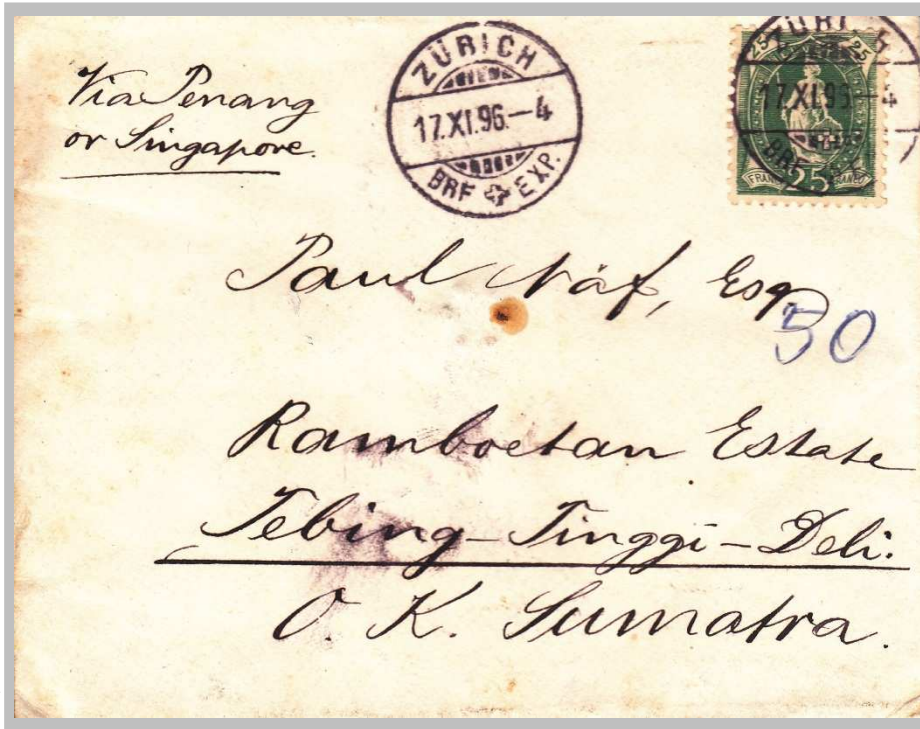 Via Penang
or Singapore.
ZÜRICH
17.XI.96.–4
BRF EXP.
ZÜRICH
25 25
17.XI.96–4
BRF
FRANCO 25 FRANCO
Paul Näf, Esq.
50
Ramboetan Estate
Tebing-Tinggi-Deli.
O. K. Sumatra.